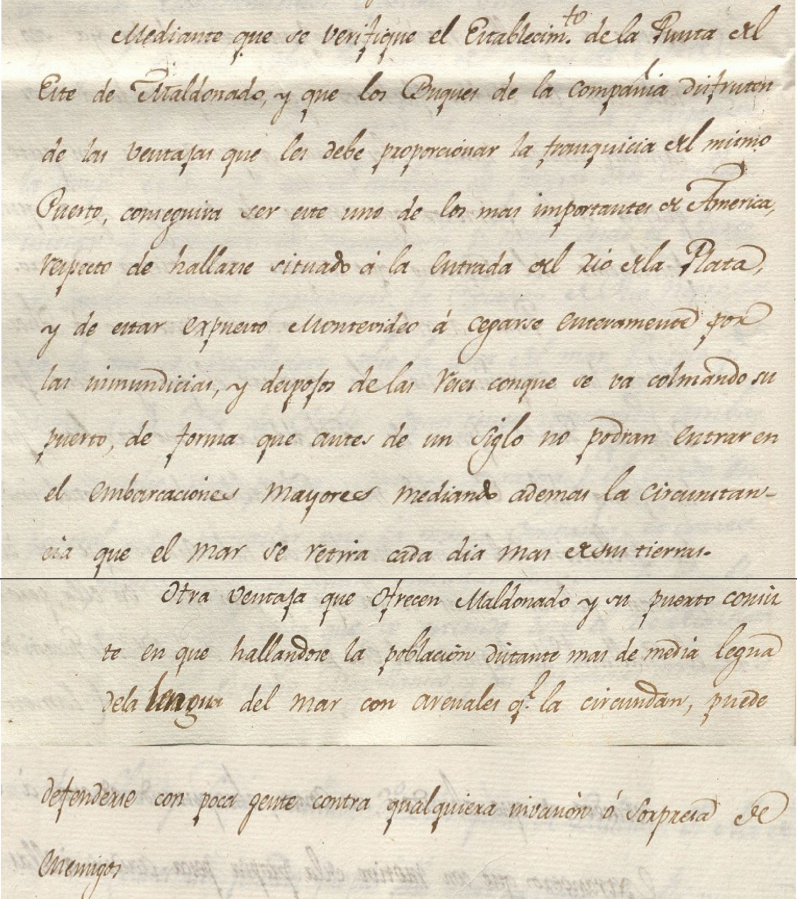 Mediante que se verifique el Establecim.to de la Punta del
Este de Maldonado, y que los Buques de la Compañia disfruten
de las ventajas que les debe proporcionar la franquicia del mismo
Puerto, conseguira ser este uno de los mas importantes de America,
respecto de hallarse situado á la entrada del Rio de la Plata,
y de estar expuesto Montevideo á cegarse enteramente por
las inmundicias, y despojos de las reses conque se va colmando su
puerto, de forma que antes de un siglo no podran entrar en
el embarcaciones mayores mediando ademas la circunstan-
cia que el mar se retira cada dia mas de sus tierras.
Otra ventaja que ofrecen Maldonado y su puerto consis
te en que hallandose la población distante mas de media legua
dela lengua del mar con arenales q.e la circundan, puede
defenderse con poca gente contra qualquiera invasion ó sorpresa de
enemigos